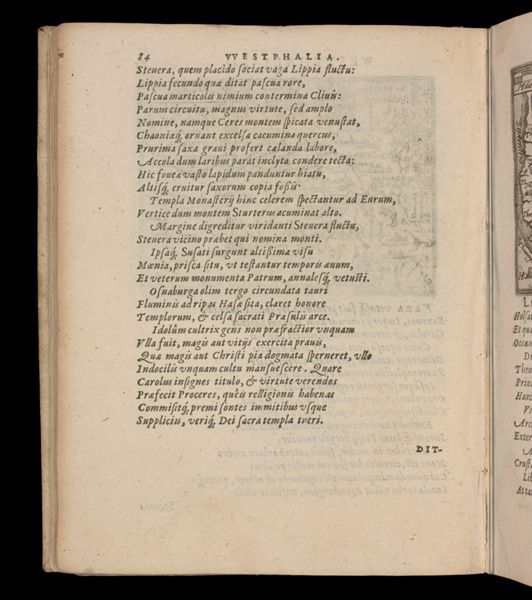 84 VVESTPHALIA.
Steuera, quem placido sociat vaga Lippia fluctu:
Lippia fecundo quæ ditat pascua rore,
Pascua marticolis nimium contermina Cliuis:
Paruus circuitu, magnus virtute, sed amplo
Nomine, namque Ceres montem spicata venustat,
Chaoniæq́; ornant excelsa cacumina quercus,
Prurima saxa graui profert cælanda labore,
Accola dum laribus parat inclyta condere tecta:
Hic fouea vasto lapidum panduntur hiatu,
Altisq́; eruitur saxorum copia fossis
Templa Monasterij hinc celerem spectantur ad Eurum,
Vertice dum montem Sturterus acuminat alto.
Margine digreditur viridanti Steuera fluctu,
Steuera vicino præbet qui nomina monti.
Ipsaq́; Susati surgunt altissima visu
Mœnia, prisca situ, vt testantur temporis æuum,
Et veterum monumenta Patrum, annalesq́; vetusti.
Osnaburga olim tergo circundata tauri
Fluminis ad ripas Hasæ sita, claret honore
Templorum, & celsa sacrati Præsulis arce.
Idolûm cultrix gens non præfractior vnquam
Vlla fuit, magis aut vitijs exercita prauis,
Quæ magis aut Christi pia dogmata sperneret, vllo
Indocilis vnquam cultu mansuescere. Quare
Carolus insignes titulo, & virtute verendos
Præfecit Proceres, queis relligionis habenas
Commisitq́; premi sontes immitibus vsque
Supplicijs, veriq́; Dei sacra templa tueri.
DIT-